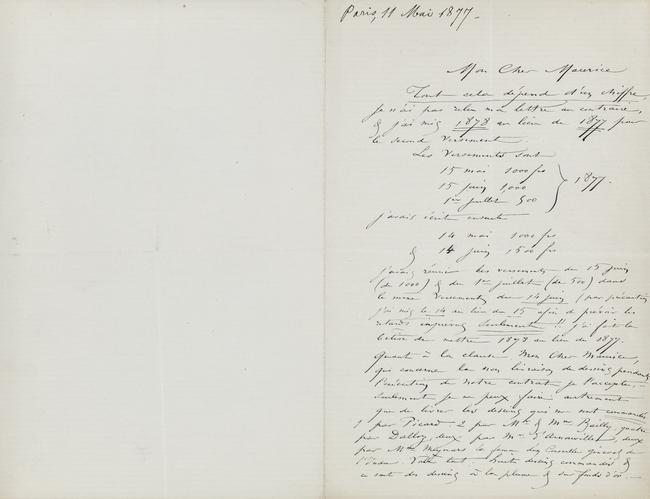 Paris, 11 Mai 1877.
Mon Cher Maurice
Tout cela dépend d'un chiffre,
je n'ai pas relu ma lettre au contraire,
& j'ai mis 1878 au lieu de 1877 pour
le second versement.
Les versements sont
15 mai 1000 frs
15 juin 1,000 1877.
1er juillet 500
j'avais écrit ensuite
14 mai 1000 frs
& 14 juin 1500 frs
j'avais réuni les versements du 15 juin
(de 1000) & du 1er juillet (de 500) dans
le même versement du 14 juin (par précaution
j'ai mis le 14 au lieu du 15 afin de prévoir les
retards seulement !! j'ai fait la
bêtise de mettre 1878 au lieu de 1877.
Quant à la clause Mon Cher Maurice,
qui concerne la non livraison de dessins pendant
l'exécution de notre contrat je l'accepte.
seulement je ne peux faire autrement
que de livrer les dessins qui me sont commandés
1 par Picard, 2 par Mr & Mme Bailly, quatre
par Dalloz, deux par Mr d'
par Mme la femme du Consulte Général de
l'Inde. Voilà tout. Huit dessins commandés &
ce sont des dessins à la plume & sur fonds d'or.